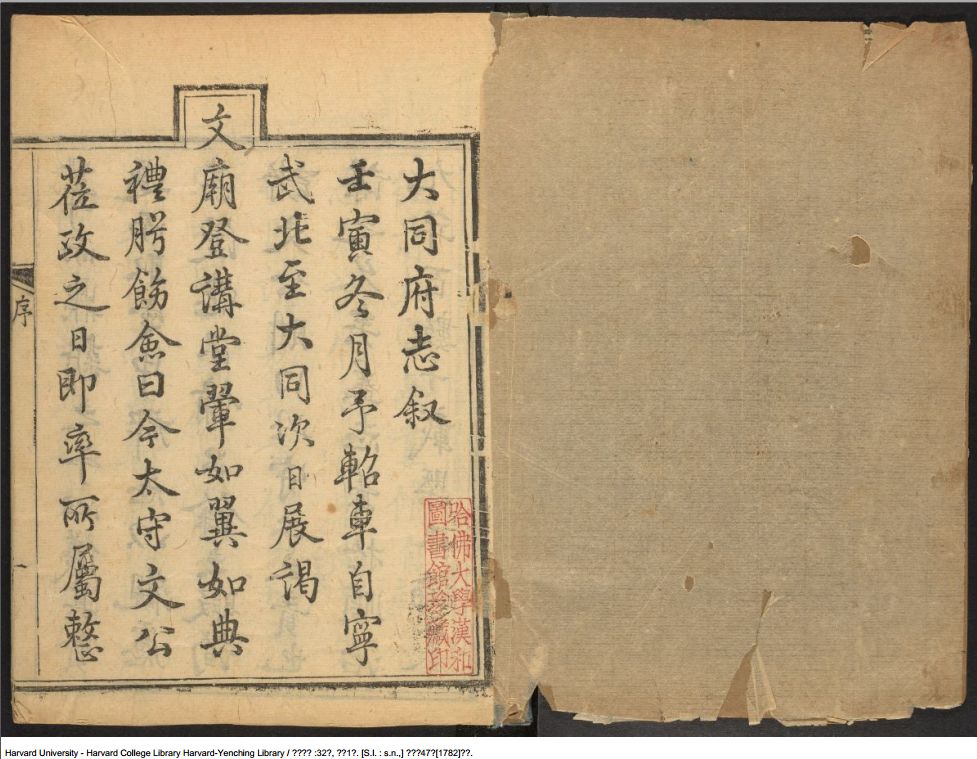 大同府志叙
壬寅冬月予軺車自寧
武北至大同次日展謁
文廟登講堂翬如翼如典
禮肹飭僉曰今太守文公
莅政之日即率所屬整
序
哈佛大學漢和
圖書館珍藏印
Harvard University - Harvard College Library Harvard-Yenching Library / ???? :32?, ??1?. [S.l. : s.n.,] ???47?[1782]??.